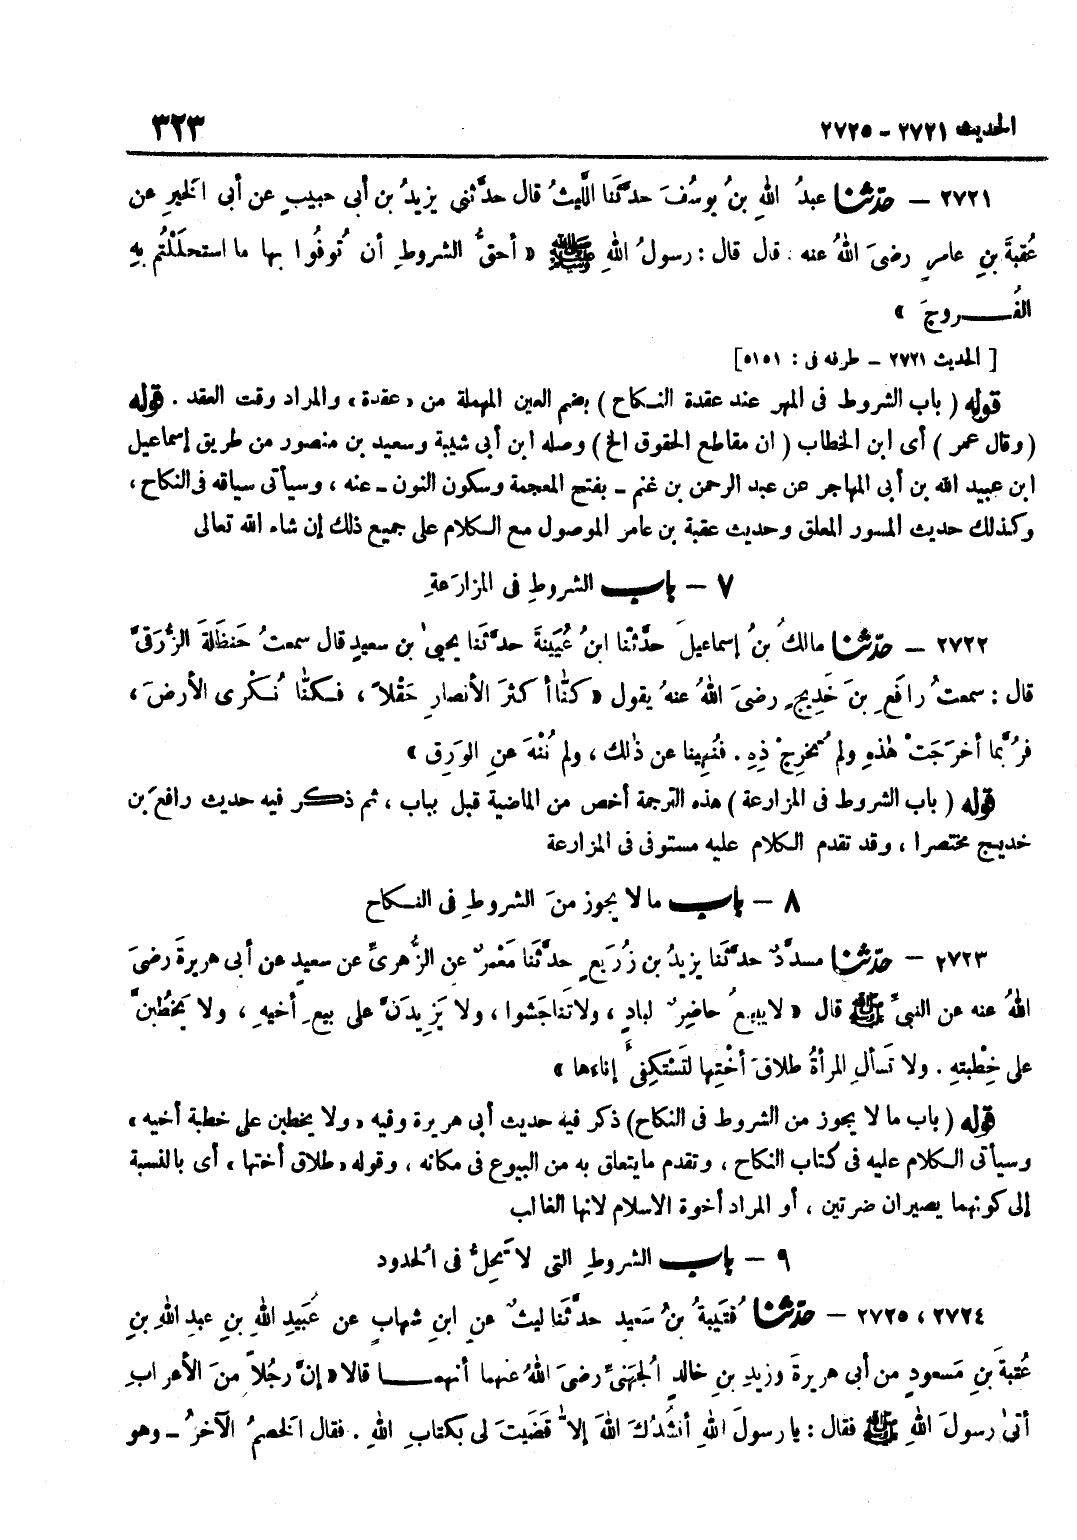 الحديث ٢٧٢١ - ٢٧٢٥
٣٢٣
٢٧٢١ – حدّثنا عبدُ اللهِ بنُ يوسُفَ حدَّثَنا اللَّيثُ قال حدَّثني يزيدُ بن أبي حبيبٍ عن أبى الخيرِ عن
عُقبةَ بنِ عامرٍ رضىَ اللهُ عنه قال قال : رسولُ اللهِ ﷺ « أحقُّ الشروطِ أن تُوفُوا بها ما استحلَلْتُم بهِ
الفُـــروجَ »
[ الحديث ٢٧٢١ ــ طرفه فى : ٥١٥١]
قوله ( باب الشروط فى المهر عند عقدة النـكاح ) بضم العين المهملة من «عقدة» والمراد وقت العقد . قوله
( وقال عمر ) أى ابن الخطاب ( ان مقاطع الحقوق الخ ) وصله ابن أبى شيبة وسعيد بن منصور من طريق إسماعيل
ابن عبيد الله بن أبى المهاجر عن عبد الرحمن بن غنم ــ بفتح المعجمة وسكون النون ــ عنه ، وسيأتى سياقه فى النكاح ،
وكذلك حديث المسور المعلق وحديث عقبة بن عامر الموصول مع الـكلام على جميع ذلك إن شاء الله تعالى
٧ – باب الشروطِ فى المزارَعةِ
٢٧٢٢ – حدّثنا مالكُ بنُ إسماعيلَ حدَّثنا ابنُ عُيَينةَ حدَّثَنا يحيىٰ بن سعيدٍ قال سمعتُ حَنظَلةَ الزُّرَقىَّ
قال : سمعتُ رافعَ بنَ خَدِيجٍ رضىَ اللهُ عنهُ يقول « كنَّا أكثرَ الأنصارِ حَقْلاً ، فـكنَّا نُـكْرى الأرضَ ،
فرُبَّما أخرَجَتْ هٰذهِ ولم تُخرِجْ ذِهِ . فنُهِينا عن ذٰلك ، ولم نُنْهَ عنِ الوَرِق »
قوله ( باب الشروط فى المزارعة ) هذه الترجمة أخص من الماضية قبل بباب ، ثم ذكر فيه حديث رافع بن
خديج مختصرا ، وقد تقدم الـكلام عليه مستوفى فى المزارعة
٨ – باب ما لا يجوز منَ الشروطِ فى النـكاح
٢٧٢٣ – حدّثنا مسدَّدٌ حدَّثَنا يزيدُ بن زُرَيعٍ حدَّثَنا مَعْمرٌ عنِ الزُّهرىِّ عن سعيدٍ عن أبى هريرةَ رضىَ
اللهُ عنه عن النبىِّ ﷺ قال « لا يبيعُ حاضِرٌ لبادٍ ، ولا تَناجَشوا ، ولا يَزِيدَنَّ على بيعِ أخيهِ ، ولا يَخطُبنَّ
على خِطْبتهِ . ولا تَسألِ المرأةُ طلاقَ أختِها لتَستَكفِئَ إناءها »
قوله ( باب ما لا يجوز من الشروط فى النكاح) ذكر فيه حديث أبى هريرة وفيه « ولا يخطبن على خطبة أخيه »
وسيأتى الـكلام عليه فى كتاب النكاح ، وتقدم ما يتعلق به من البيوع فى مكانه ، وقوله « طلاق أختها » أى بالنسبة
إلى كونهما يصيران ضرتين ، أو المراد أخوة الاسلام لانها الغالب
٩ – باب الشروطِ التى لا تَحِلُّ فى الحدود
٢٧٢٤ ، ٢٧٢٥ – حدّثنا قُتَيبةُ بنُ سَعيدٍ حدَّثَنا ليثٌ عنِ ابنِ شهابٍ عن عُبَيدِ اللهِ بنِ عبدِ اللهِ بنِ
عُتبةَ بنِ مَسعودٍ عن أبى هريرةَ وزيدِ بنِ خالدٍ الجُهَنىِّ رضىَ اللهُ عنهما أنهمـــا قالا « إنَّ رجُلاً منَ الأعرابِ
أتىٰ رسولَ اللهِ ﷺ فقال : يا رسولَ اللهِ أنشُدُكَ اللهَ إلاَّ قضَيتَ لى بكتابِ اللهِ . فقال الخصمُ الآخرُ ــ وهو